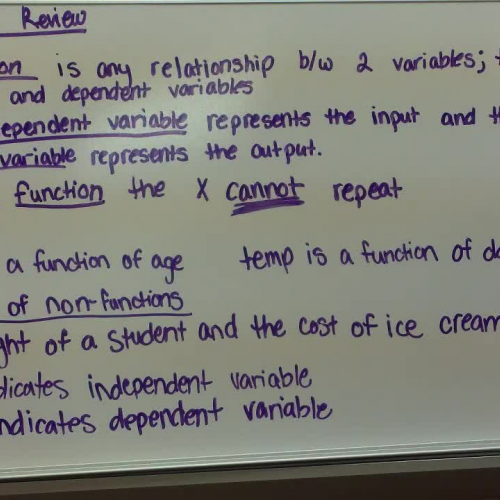 Review
is any relationship b/w 2 variables;
and dependent variables
ependent variable represents the input and
variable represents the output.
function the X cannot repeat
a function of age temp is a function of
of non-functions
of a student and the cost of ice cream
independent variable
ndicates dependent variable